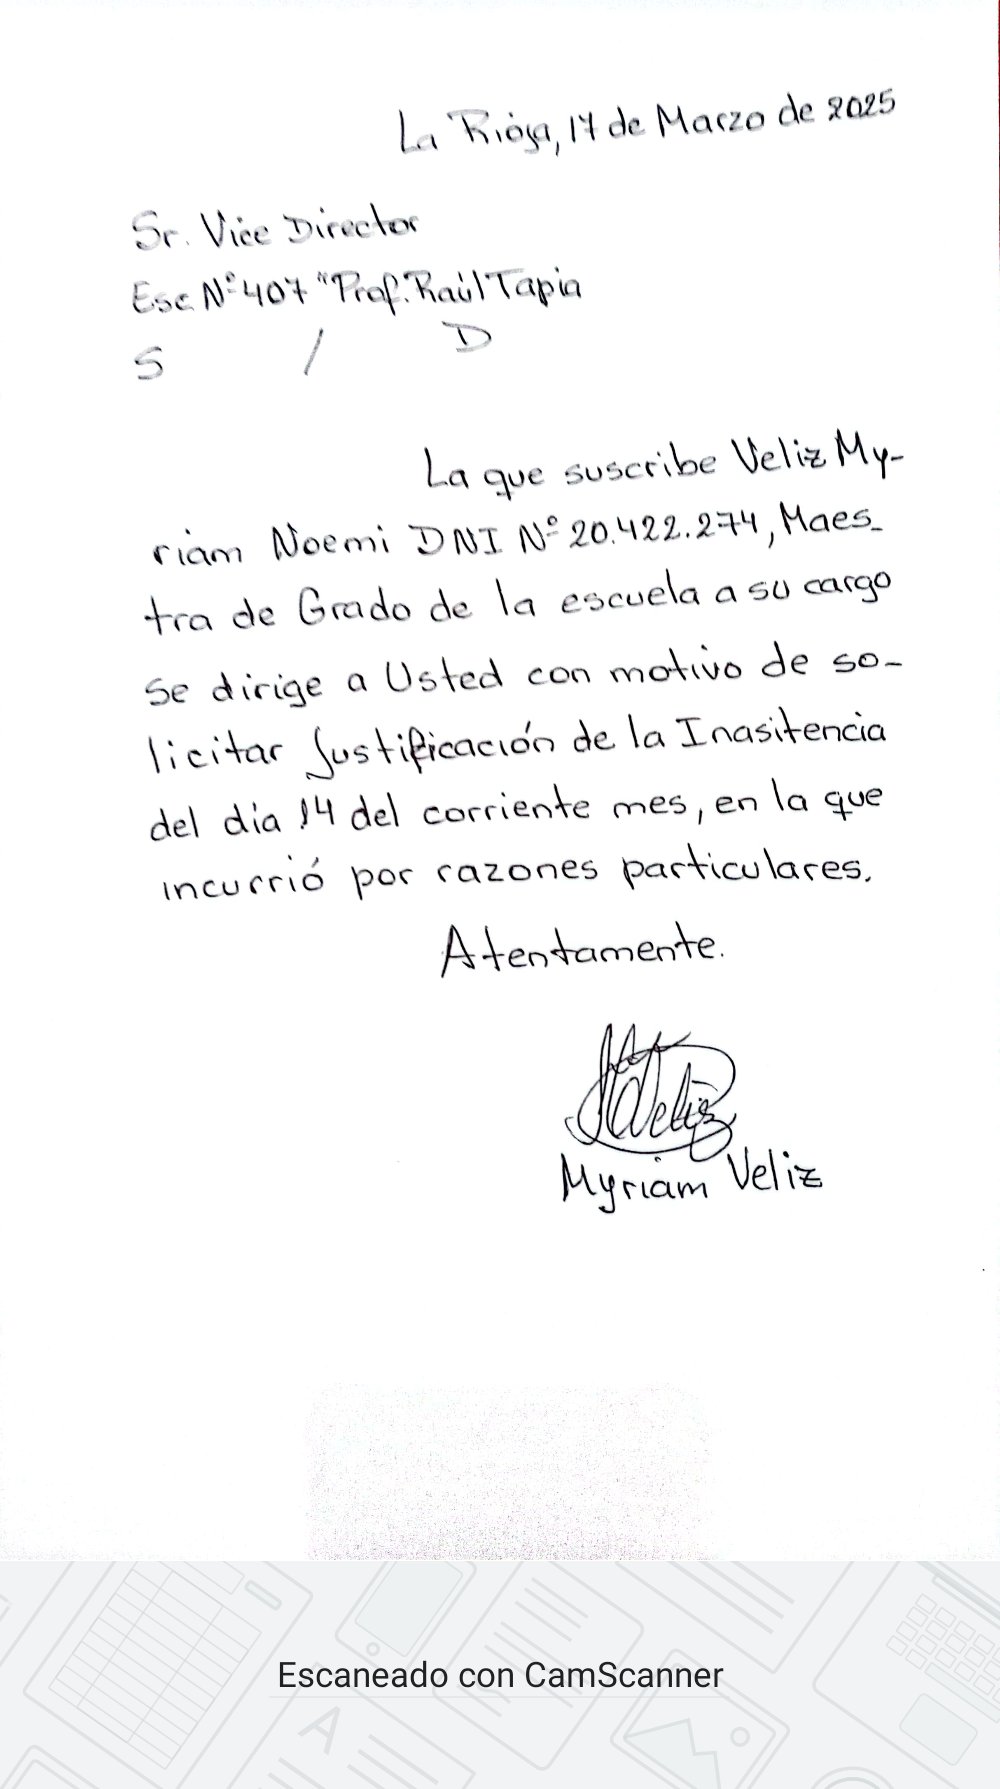 La Rioja, 17 de Marzo de 2025
Sr. Vice Director
Esc Nº 407 "Prof. Raúl Tapia
S / D
La que suscribe Veliz My-
riam Noemi DNI Nº 20.422.274, Maes-
tra de Grado de la escuela a su cargo
se dirige a Usted con motivo de so-
licitar Justificación de la Inasitencia
del día 14 del corriente mes, en la que
incurrió por razones particulares.
Atentamente.
MVeliz
Myriam Veliz
Escaneado con CamScanner